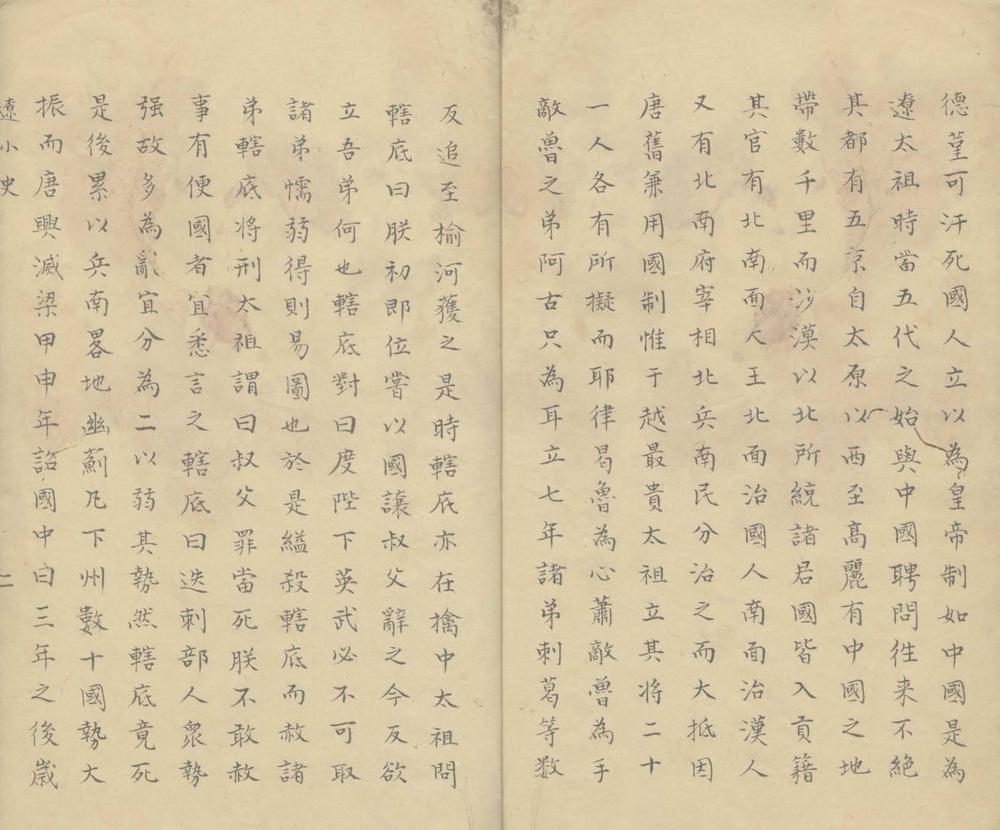 德菫可汗死國人立以為皇帝制如中國是為
遼太祖時當五代之始與中國聘問徃来不絕
其都有五京自太原以西至髙麗有中國之地
帶數千里而沙漠以北所統諸君國皆入貢籍
其官有北南面人王北面治國人南面治漢人
又有北南府宰相北兵南民分治之而大抵因
唐舊兼用國制惟于越最貴太祖立其将二十
一人各有所擬而耶律曷魯為心蕭敵魯為手
敵魯之弟阿古只為耳立七年諸弟刺葛等数
反追至榆河獲之是時轄底亦在擒中太祖問
轄底曰朕初即位嘗以國讓叔父辭之今反欲
立吾弟何也轄底對曰度陛下英武必不可取
諸弟懦弱得則易圖也於是縊殺轄底而赦諸
弟轄底将刑太祖謂曰叔父罪當死朕不敢赦
事有便國者宜悉言之轄底曰迭刺部人衆勢
强故多為亂宜分為二以弱其勢然轄底竟死
是後累以兵南畧地幽薊凡下州數十國勢大
振而唐興滅梁甲申年詔國中曰三年之後歲
遼小史 二